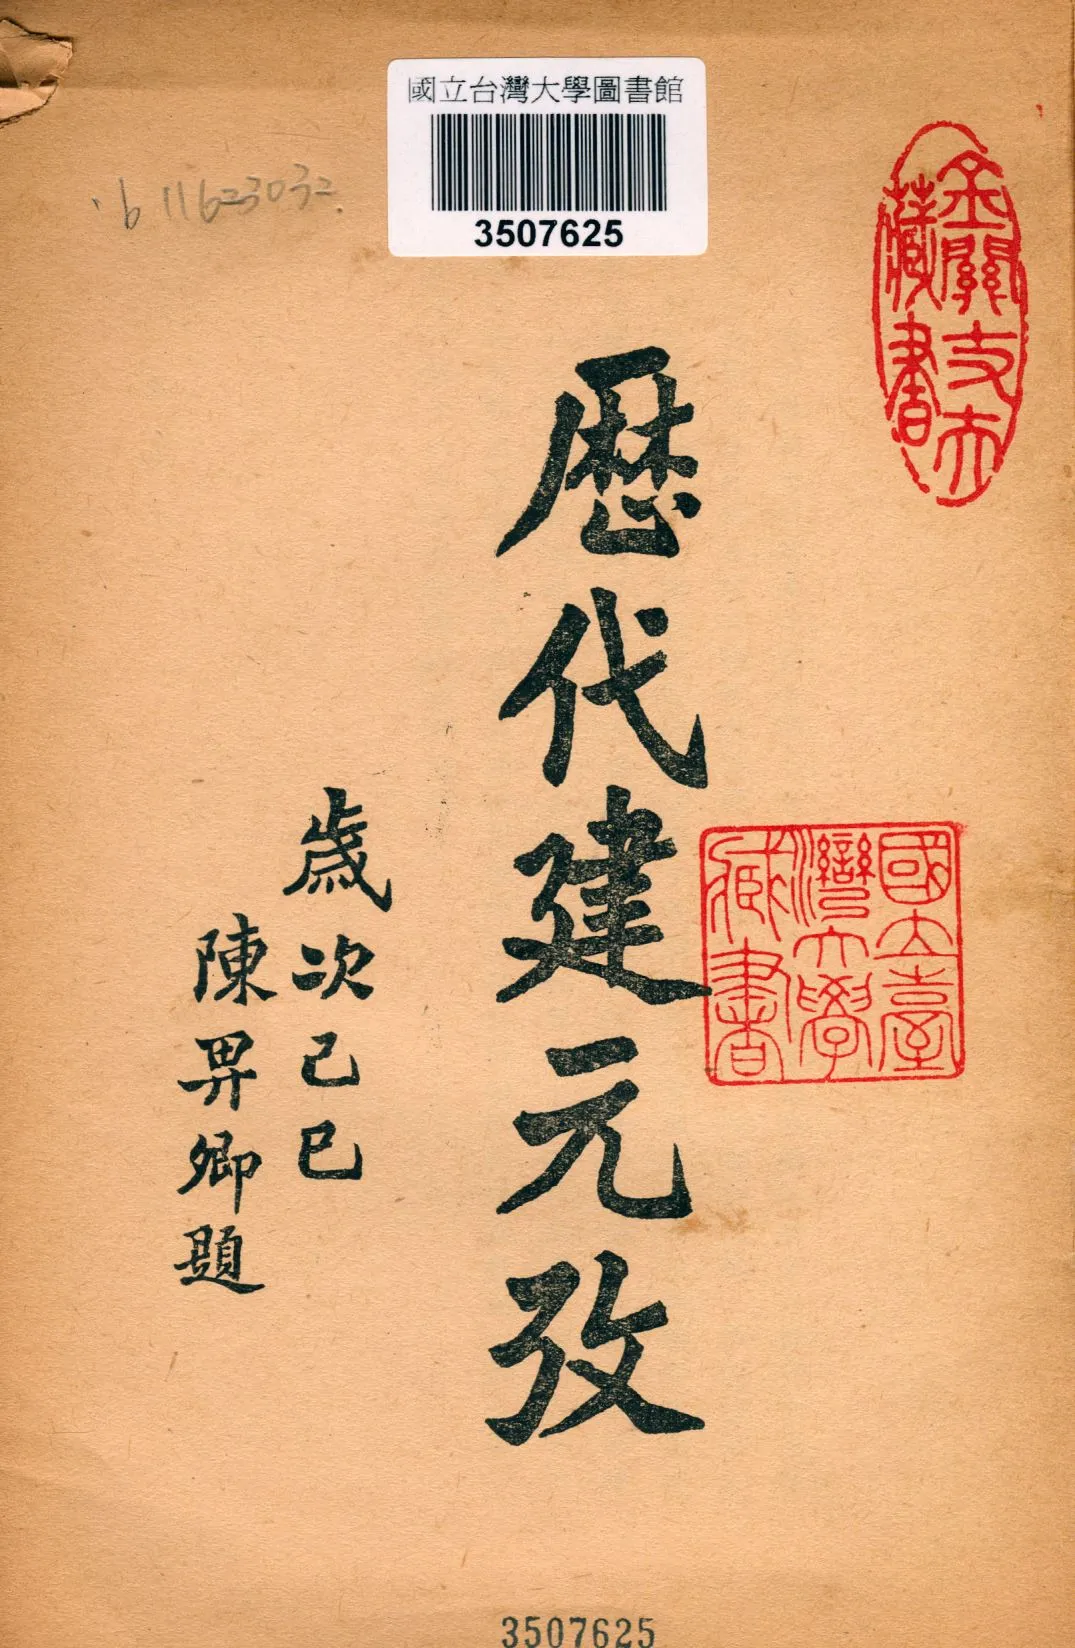 國立台灣大學圖書館
3507625
.b 11623032
金關丈夫
藏書
歴代建元攷
國立臺
灣大學
藏書
歲次己巳
陳畀卿題
3507625